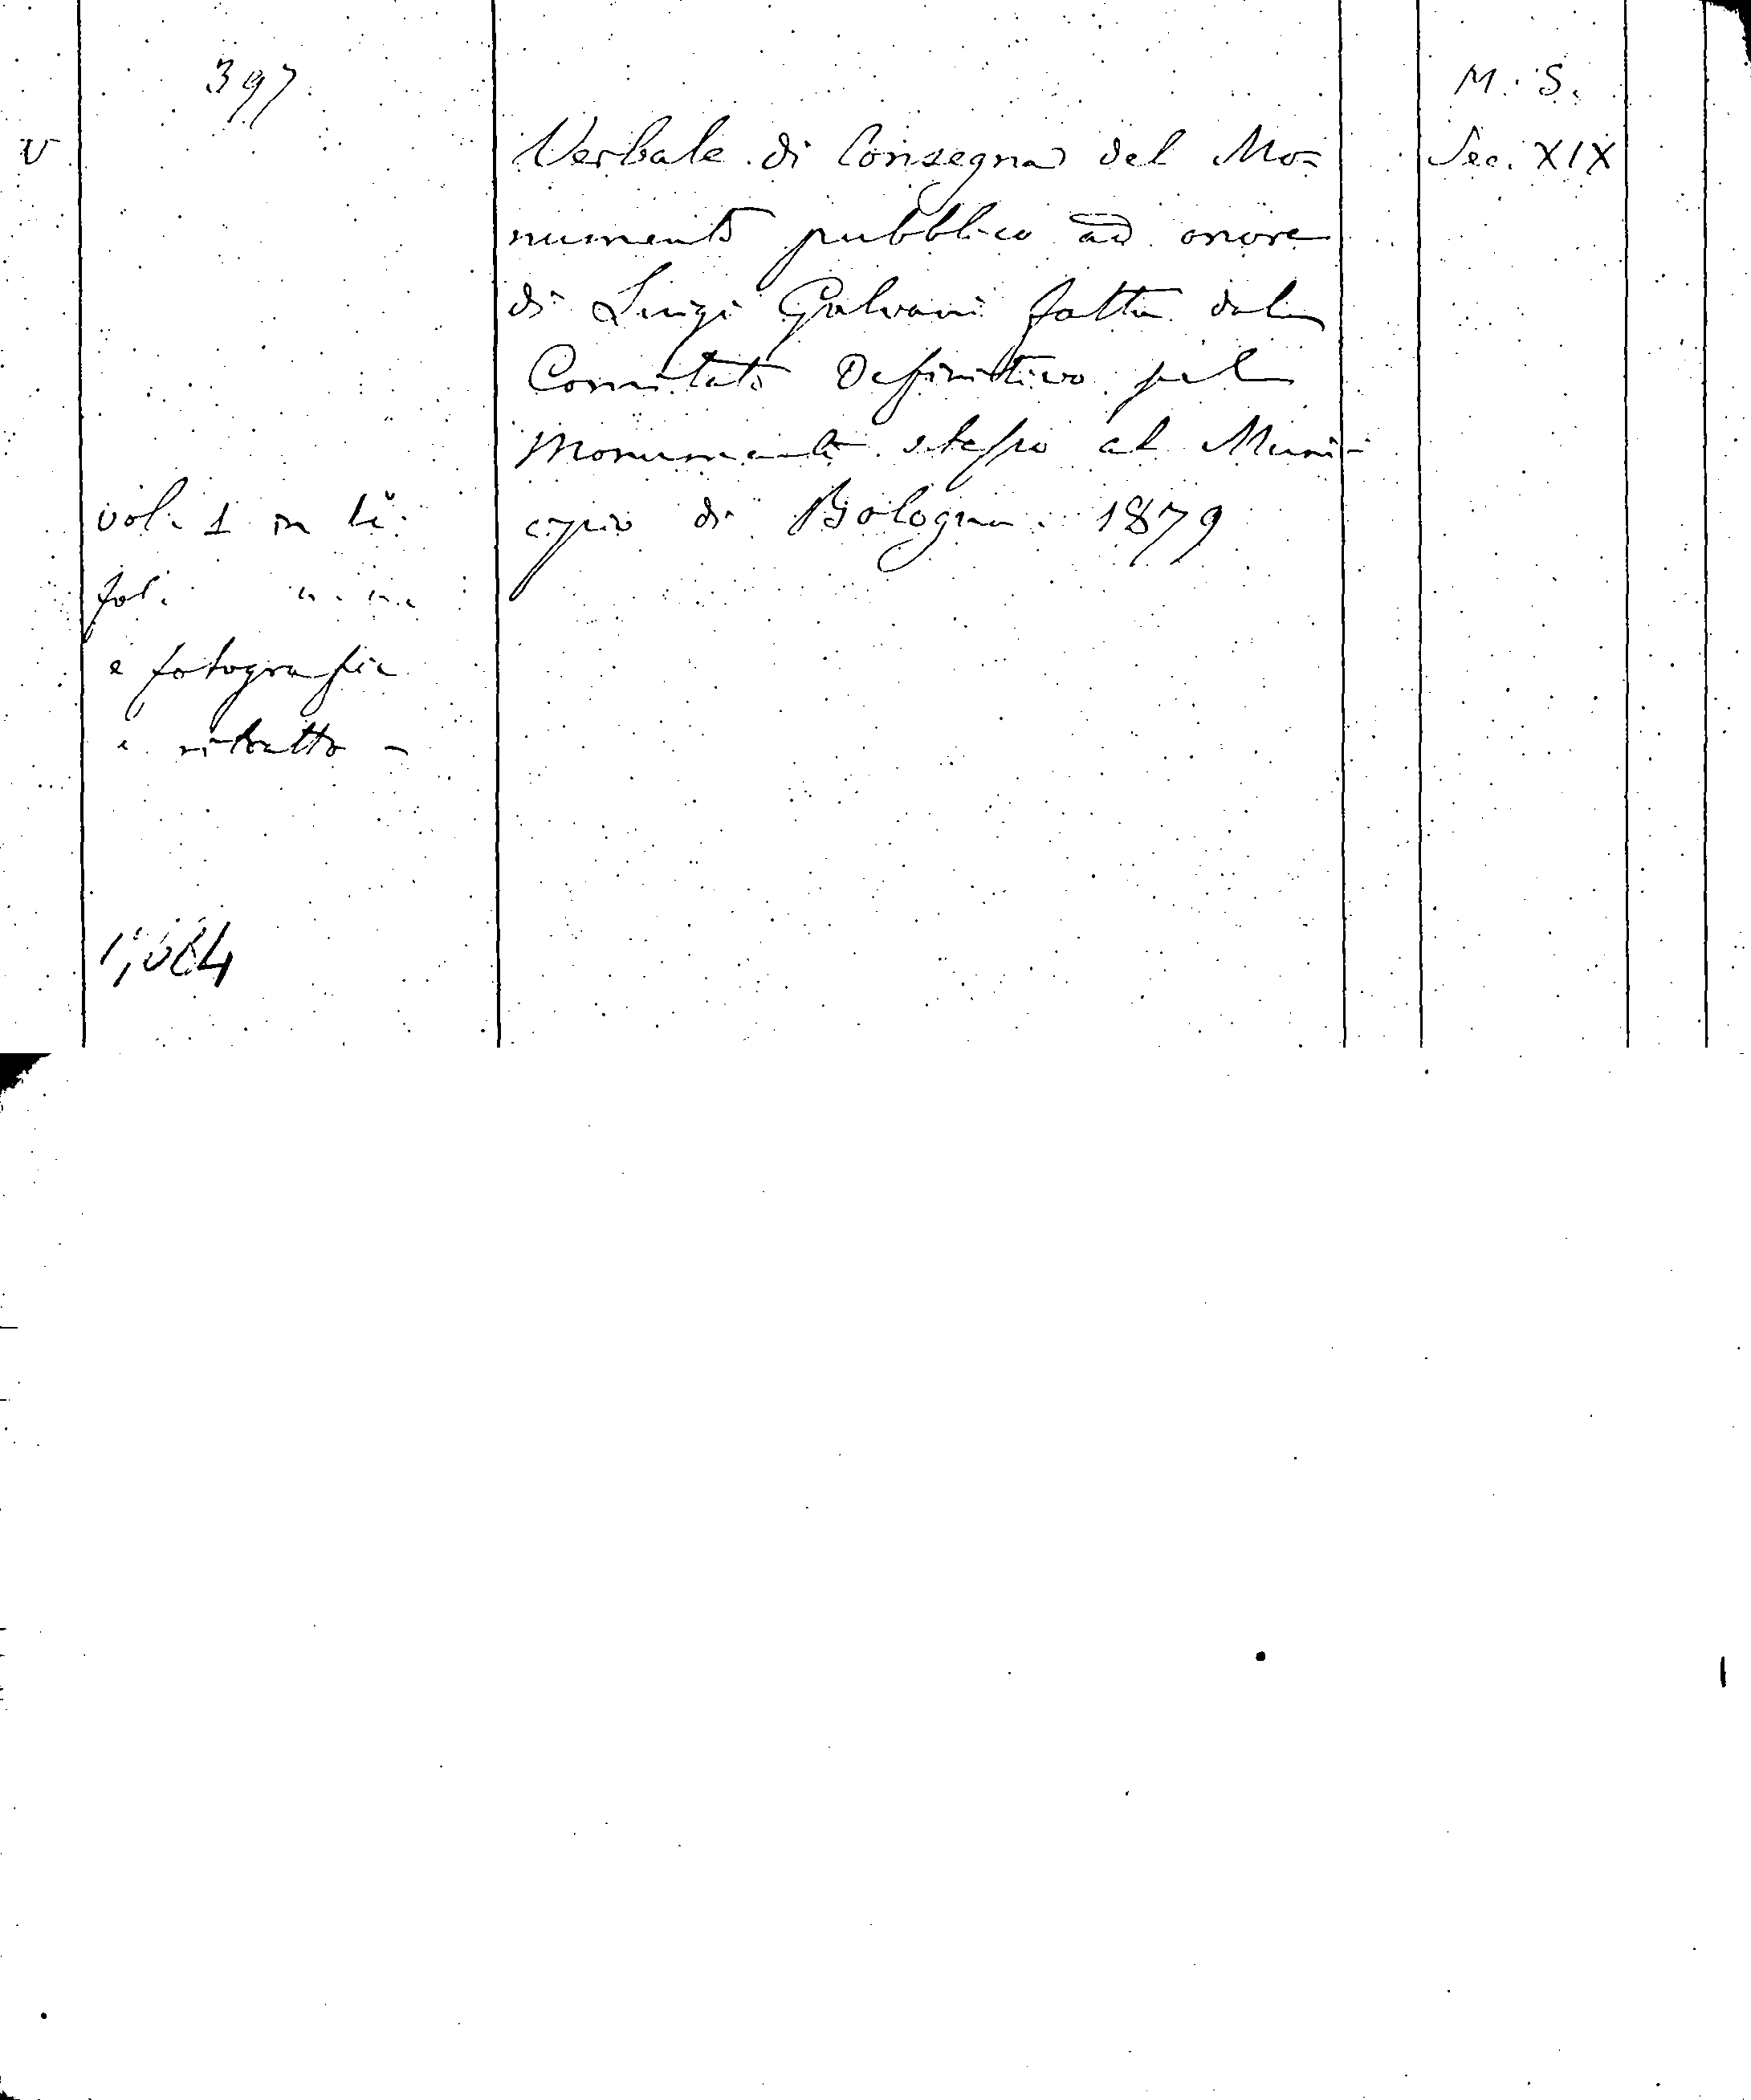 397
M. S.
V
Verbale di Consegna del Mo=
Sec. XIX
numento pubblico ad onore
di Luigi Galvani fatta dal
Comitato Definitivo pel
Monumento stesso al Muni-
vol. 1 in
cipio di Bologna. 1879
fol.
e fotografia
e ritratto -